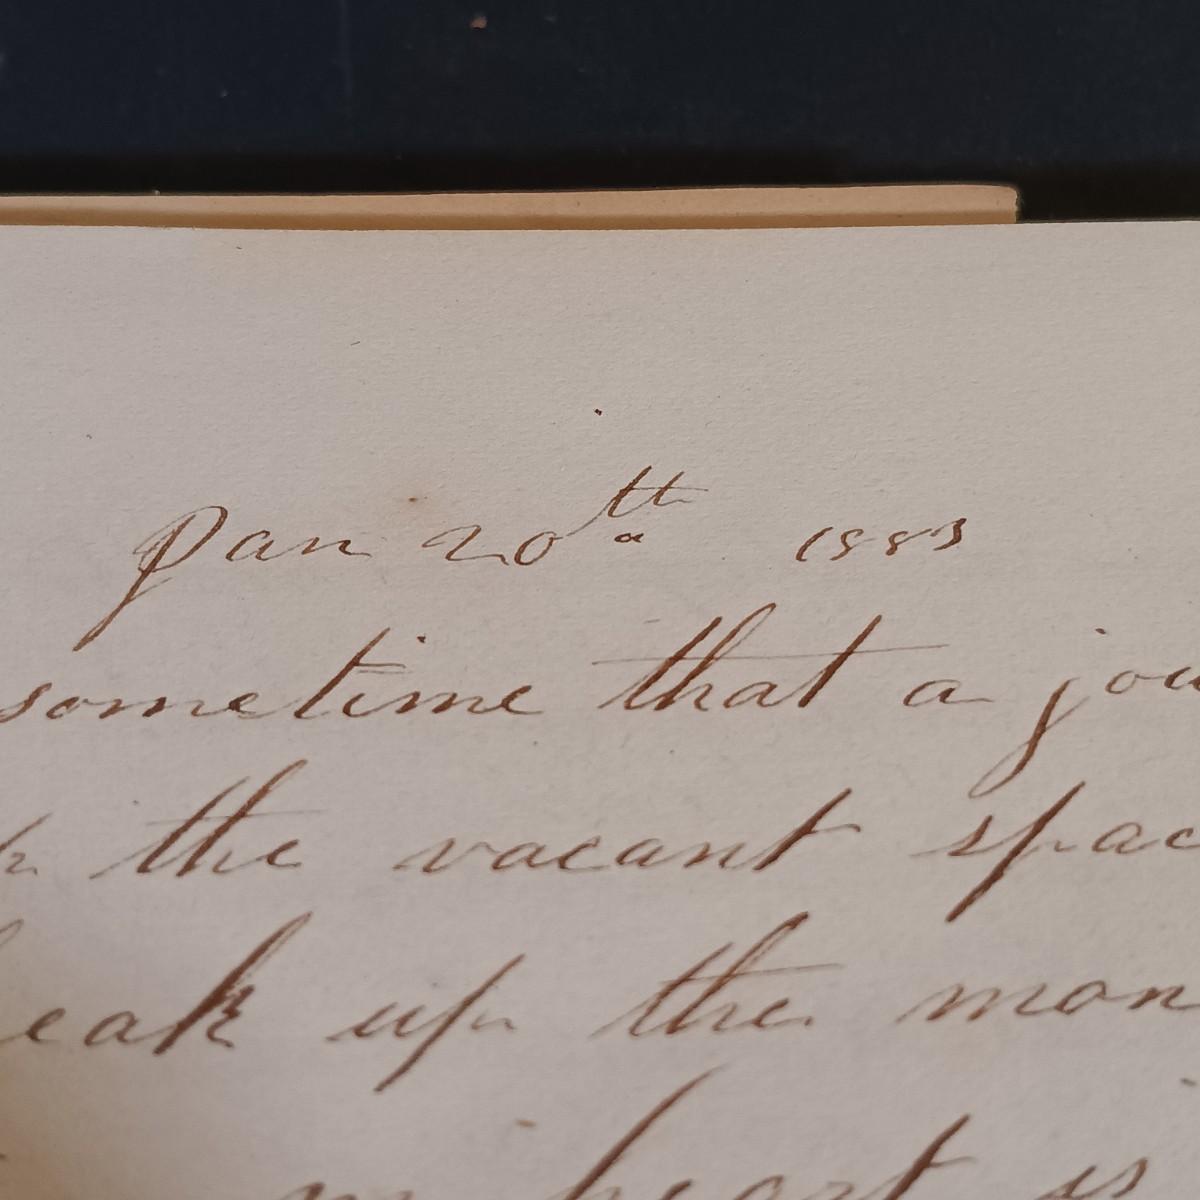 Jan 20th 1883
sometime that a jou
the vacant spac
eak up the mon
m heart is